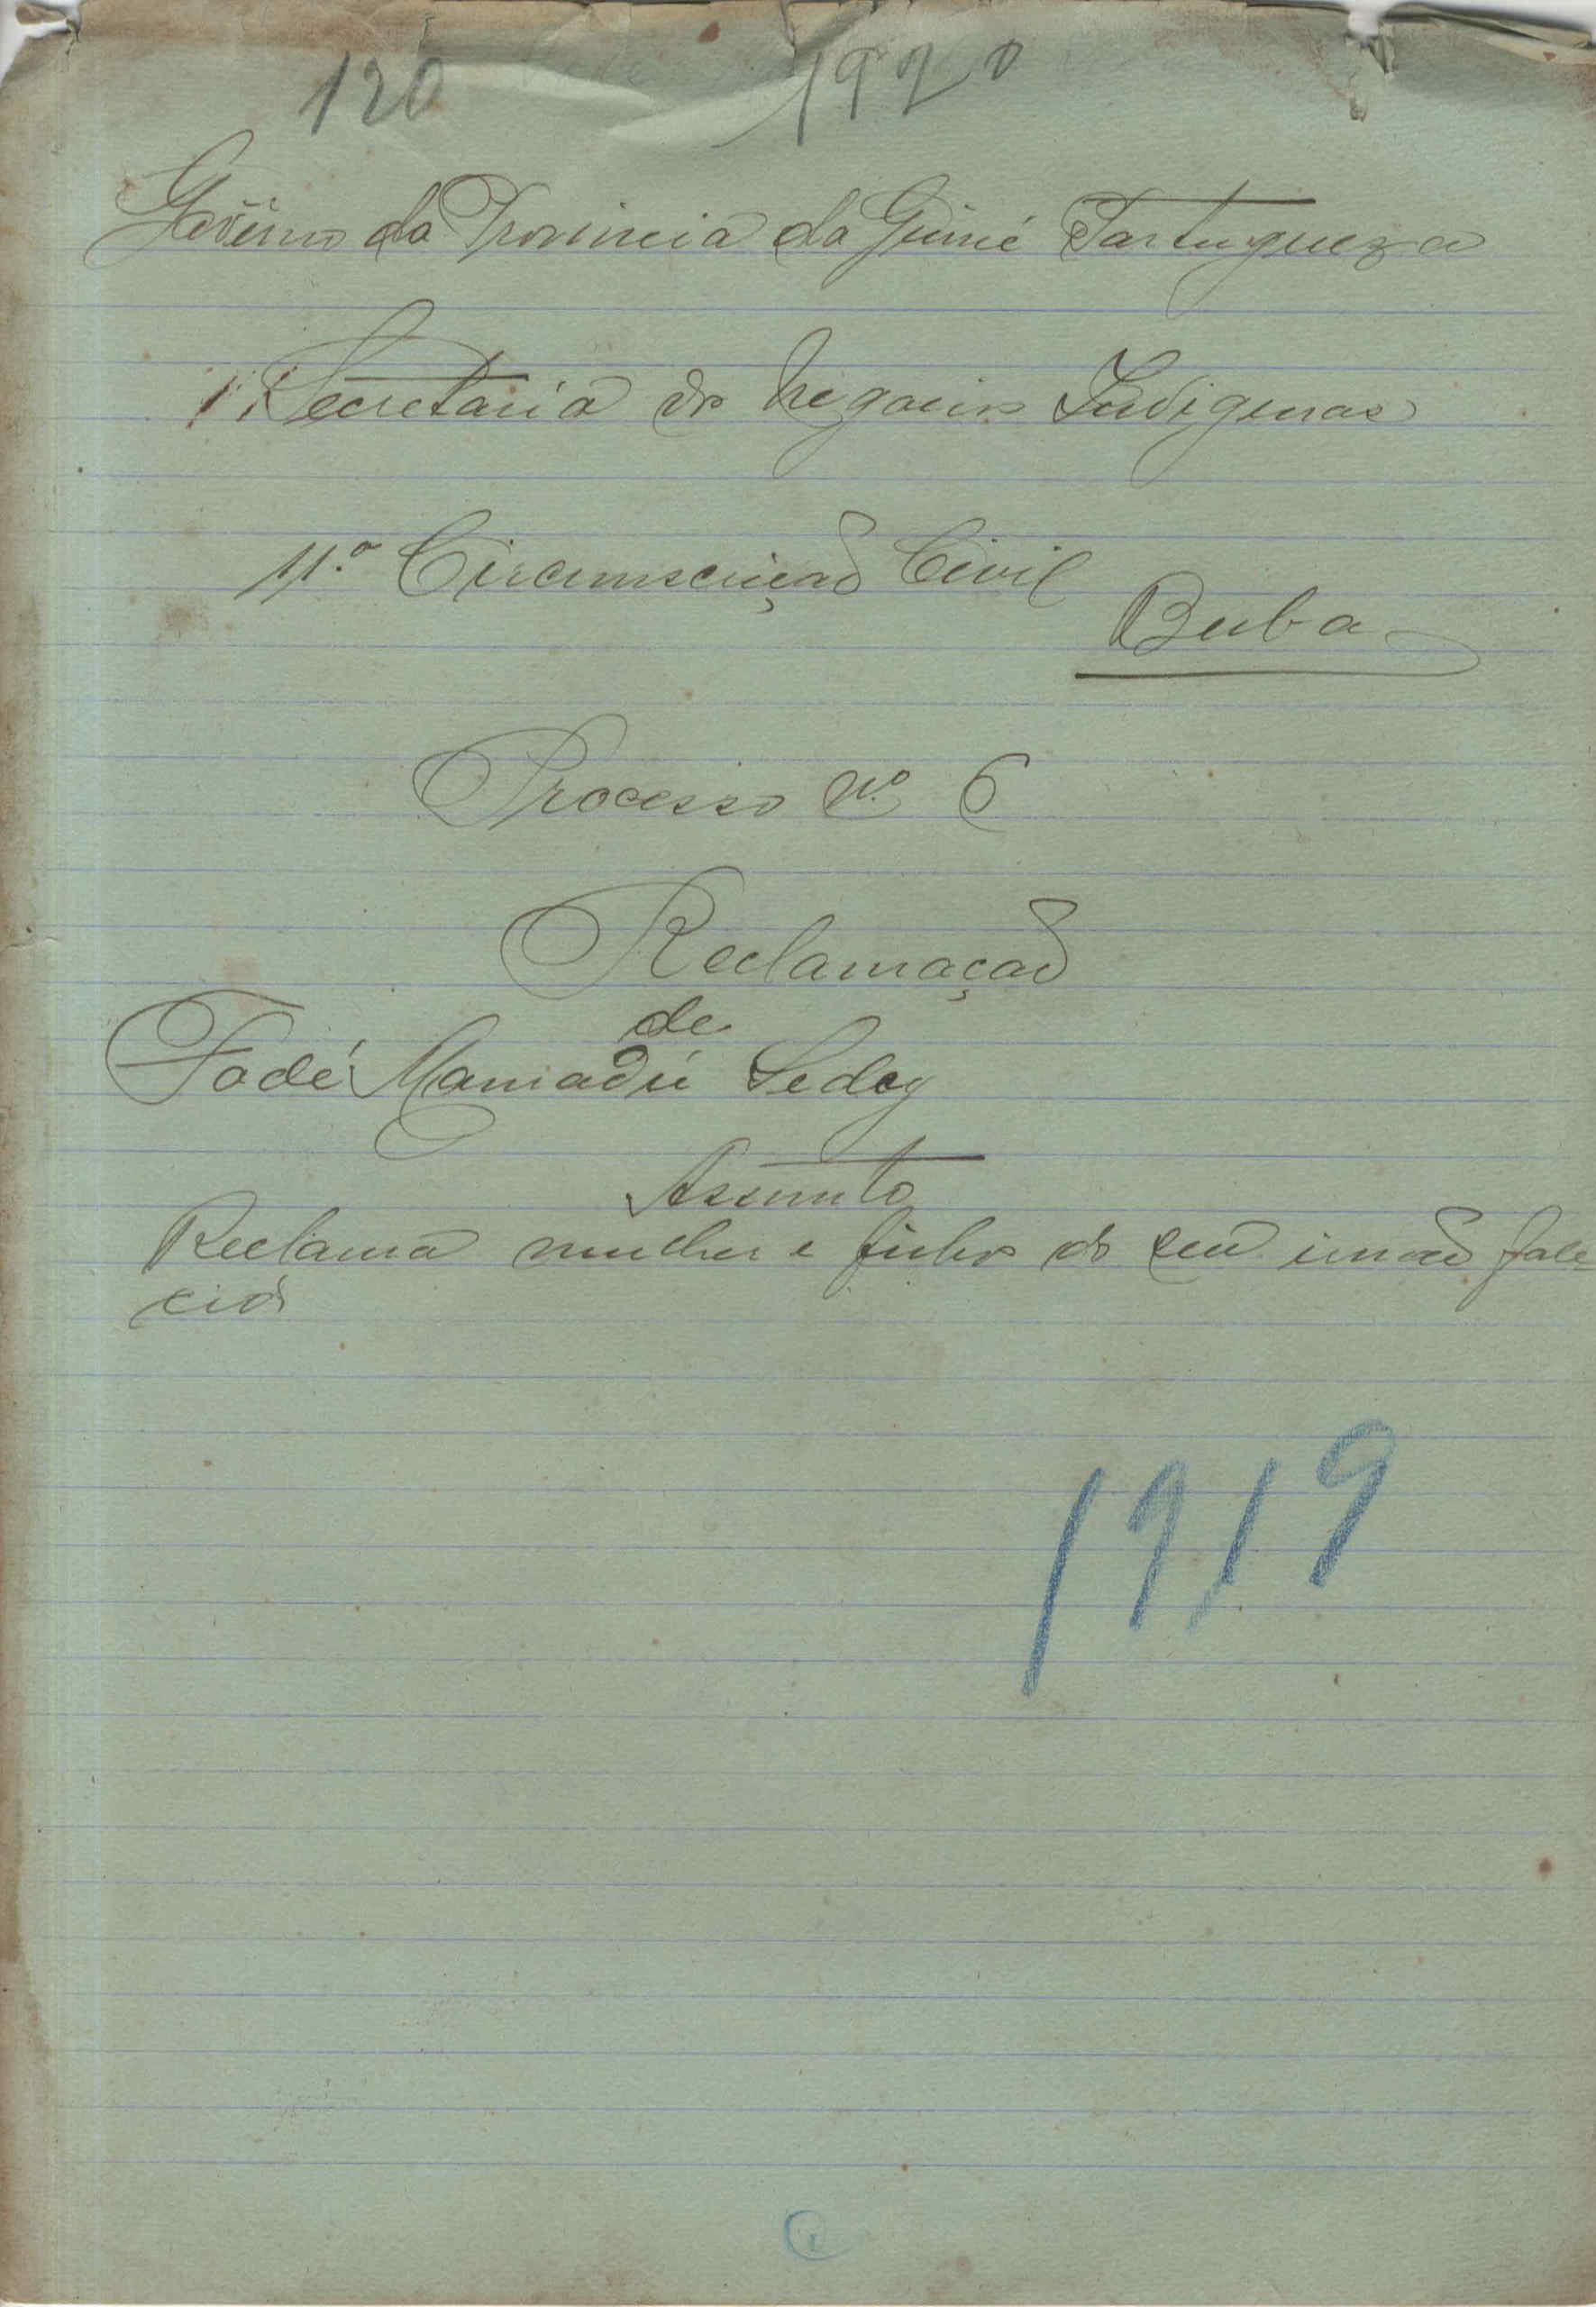 120 1920
Govêrno da Provincia da Guiné Portugueza
Secretaria dos Negocios Indigenas
11.ª Circumscrição Civil
Buba
Processo N.º 6
Reclamação
de
Fodé Mamadú Seday
Assunto
Reclama mulher e filhos do seu irmão fale
cido
1919
1